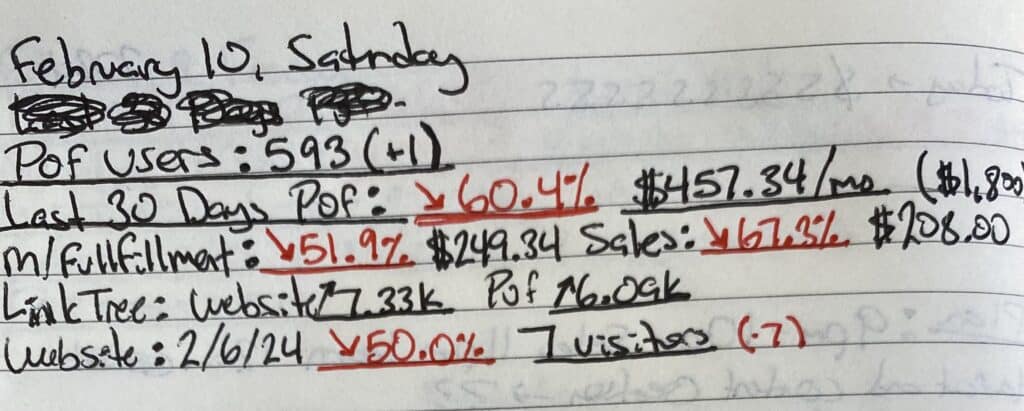 February 10, Saturday
Pof users: 593 (+1)
Last 30 Days Pof: ↘60.4% $457.34/mo ($1,800
m/fullfillment: ↘51.9% $249.34 Sales: ↘67.3% $208.00
Link Tree: website ↗7.33k Pof ↗6.09k
Website: 2/6/24 ↘50.0% 7 visitors (-7)